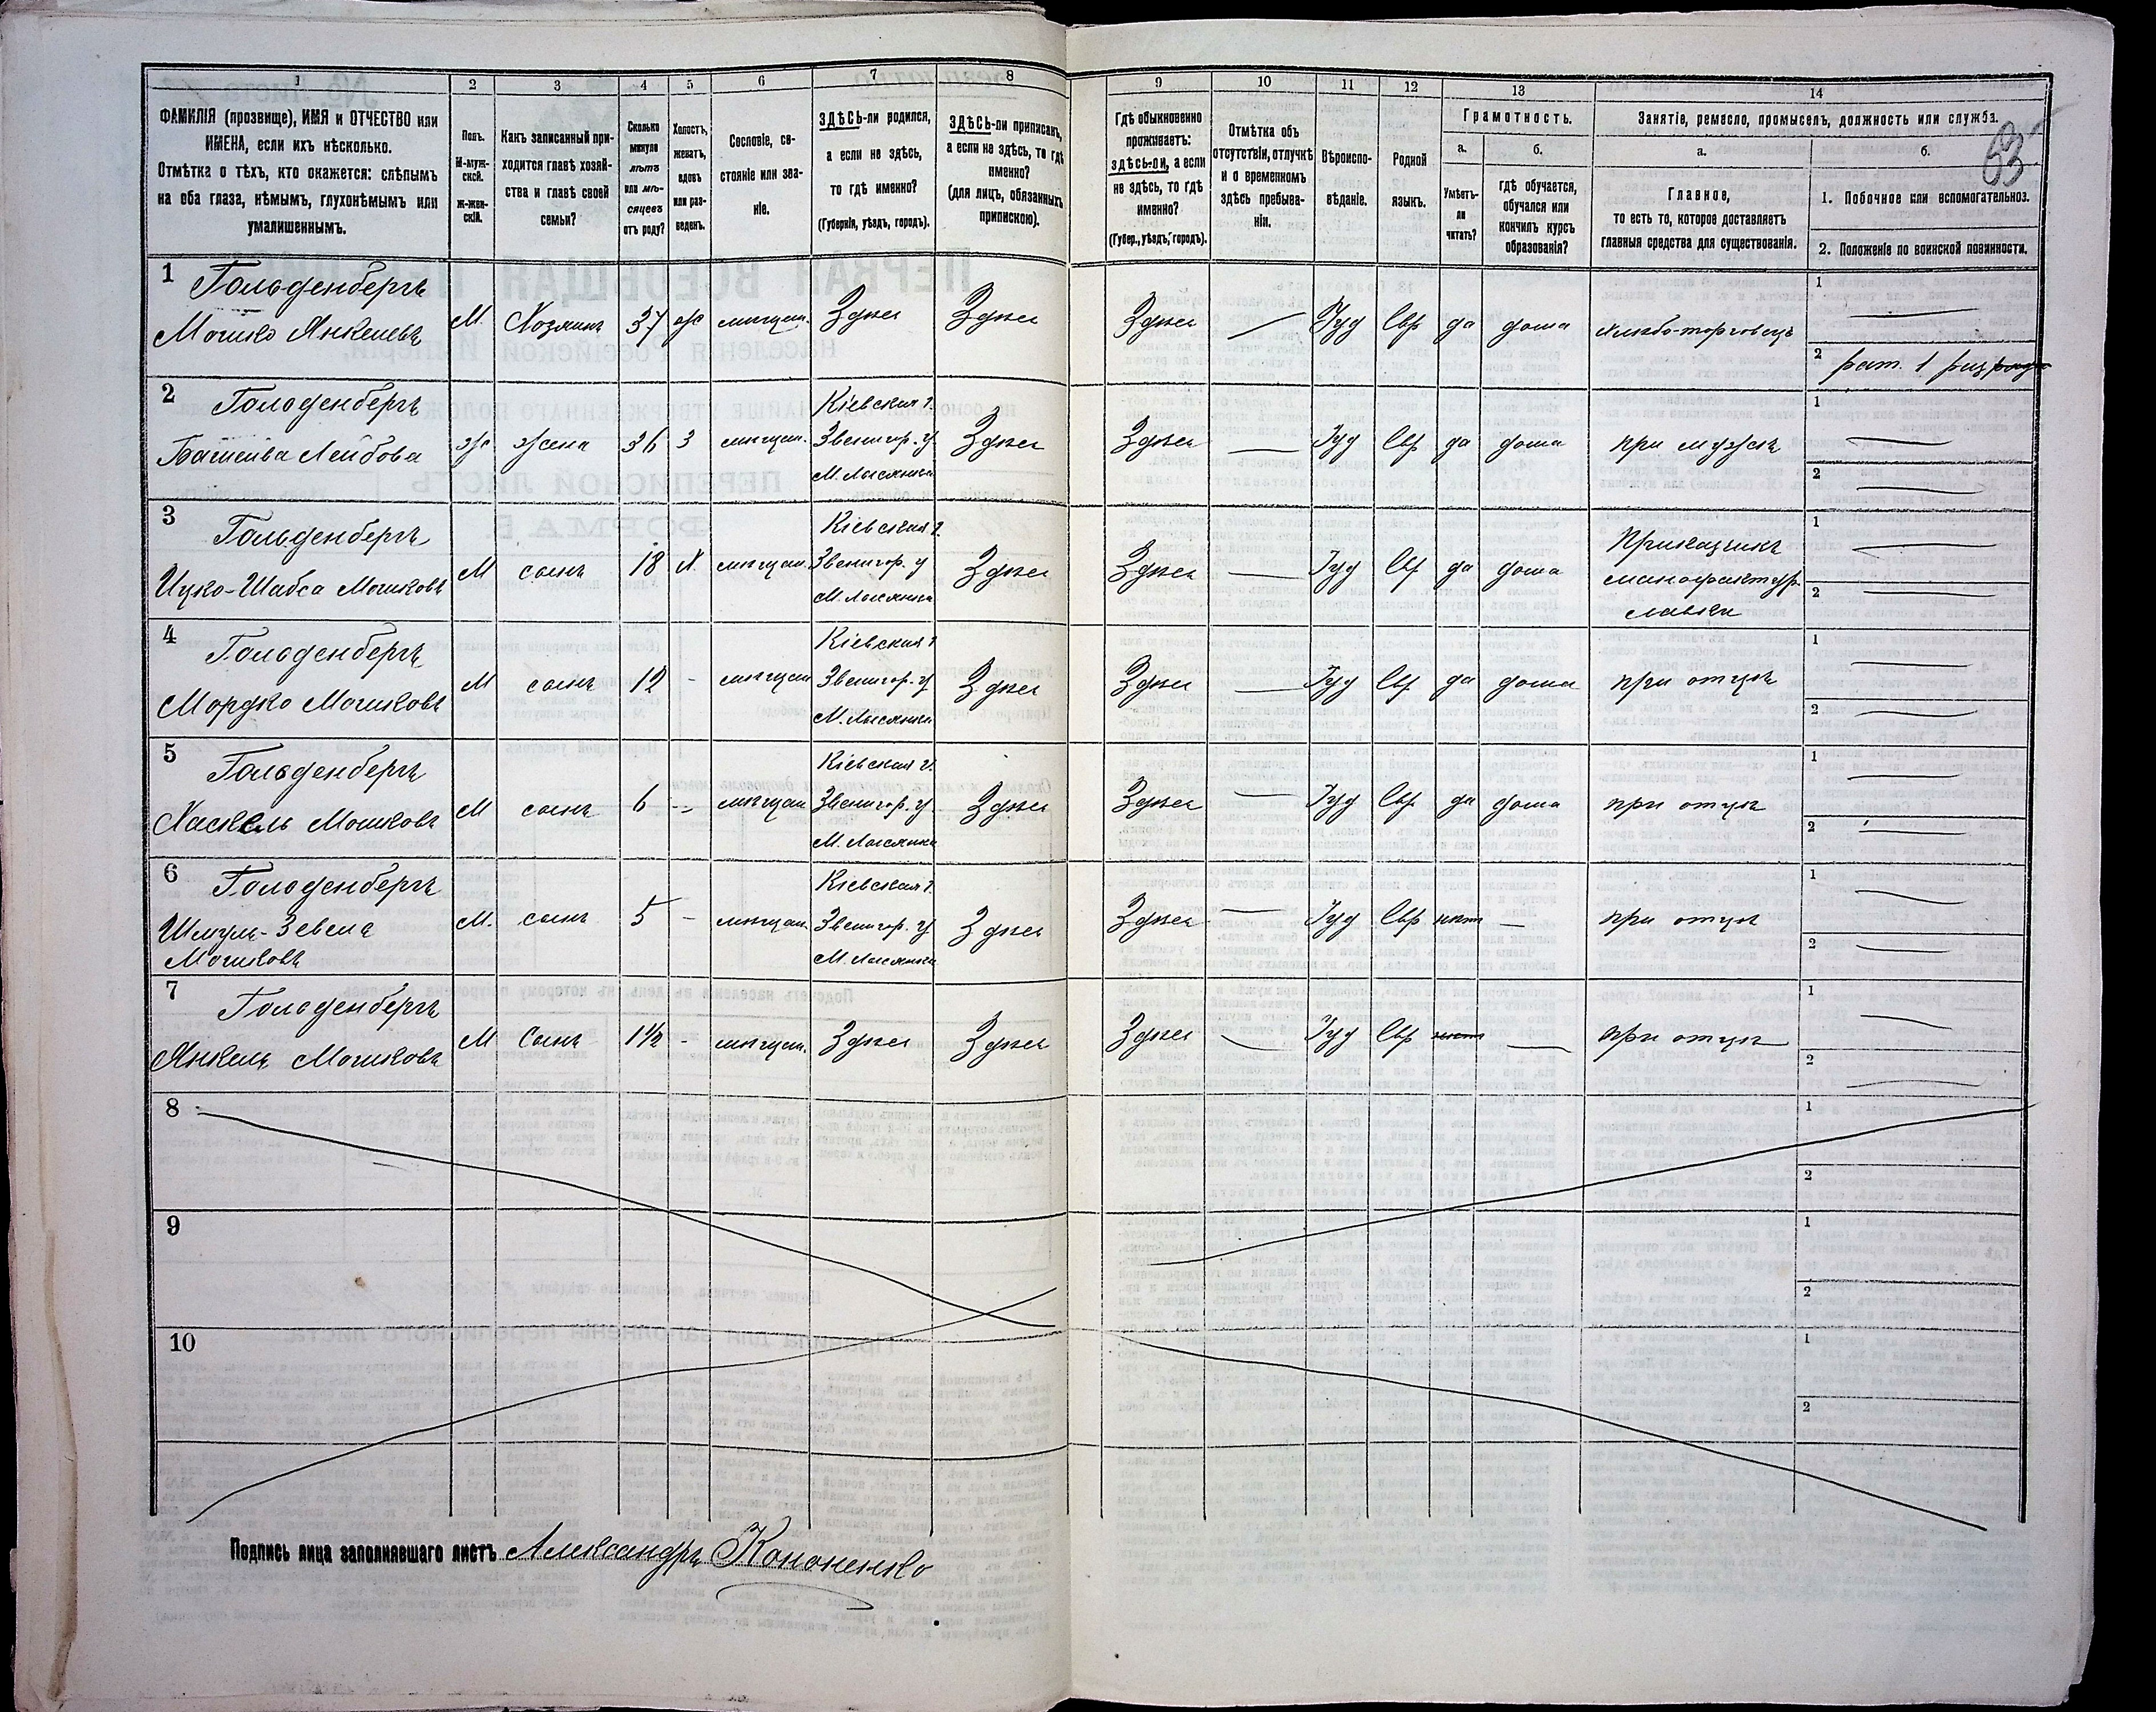 1 2 3 4 5 6 7 8 9 10 11 12 13 14
ФАМИЛІЯ (прозвище), ИМЯ и ОТЧЕСТВО или
ИМЕНА, если ихъ нѣсколько.
Отмѣтка о тѣхъ, кто окажется: слѣпымъ
на оба глаза, нѣмымъ, глухонѣмымъ или
умалишеннымъ.
Полъ.
М-муж-
ской.
Ж-жен-
скій.
Какъ записанный при-
ходится главѣ хозяй-
ства и главѣ своей
семьи?
Сколько
минуло
лѣтъ
или мѣ-
сяцевъ
отъ роду?
Холостъ,
женатъ,
вдовъ
или раз-
веденъ.
Сословіе, со-
стояніе или зва-
ніе.
ЗДѢСЬ-ли родился,
а если не здѣсь,
то гдѣ именно?
(Губернія, уѣздъ, городъ).
ЗДѢСЬ-ли приписанъ,
а если не здѣсь, то гдѣ
именно?
(для лицъ, обязанныхъ
припискою).
Гдѣ обыкновенно
проживаетъ:
здѣсь-ли, а если
не здѣсь, то гдѣ
именно?
(Губер., уѣздъ, городъ).
Отмѣтка объ
отсутствіи, отлучкѣ
и о временномъ
здѣсь пребыва-
ніи.
Вѣроиспо-
вѣданіе.
Родной
языкъ.
Грамотность.
а.
Умѣетъ-
ли
читать?
б.
гдѣ обучается,
обучался или
кончилъ курсъ
образованія?
Занятіе, ремесло, промыселъ, должность или служба.
а.
Главное,
то есть то, которое доставляетъ
главныя средства для существованія.
б.
1. Побочное или вспомогательное.
2. Положеніе по воинской повинности.
63
1 Гольденбергъ
Мошко Янкелевъ М. Хозяинъ 37 ж мѣщан. Здѣсь Здѣсь Здѣсь — Іуд Евр да дома хлѣбо-торговецъ
1 —
2 рат. 1 разряда
2 Гольденбергъ
Башейва Лейбова ж. жена 36 З мѣщан. Кіевская г.
Звенигор. у.
М. Лысянка Здѣсь Здѣсь — Іуд Евр да дома при мужѣ
1 —
2 —
3 Гольденбергъ
Ицко-Шабса Мошковъ М сынъ 18 Х. мѣщан. Кіевская г.
Звенигор. у
М. Лысянка Здѣсь Здѣсь — Іуд Евр да дома Прикащикъ
манофактур.
лавки
1 —
2 —
4 Гольденбергъ
Мордко Мошковъ М сынъ 12 - мѣщан Кіевская г
Звенигор. у
М. Лысянка Здѣсь Здѣсь — Іуд Евр да дома при отцѣ
1 —
2 —
5 Гольденбергъ
Хаскель Мошковъ М сынъ 6 - мѣщан Кіевская г.
Звенигор. у
М. Лысянка Здѣсь Здѣсь — Іуд Евр да дома при отцѣ
1 —
2 —
6 Гольденбергъ
Шмуль-Зевель
Мошковъ М. сынъ 5 - мѣщан. Кіевская г.
Звенигор. у
М. Лысянка Здѣсь Здѣсь — Іуд Евр нѣт — при отцѣ
1 —
2 —
7 Гольденбергъ
Янкель Мошковъ М Сынъ 1½ - мѣщан. Здѣсь Здѣсь Здѣсь — Іуд Евр нѣт — при отцѣ
1 —
2 —
8
1
2
9
1
2
10
1
2
Подпись лица заполнявшаго листъ Александръ Кононенко